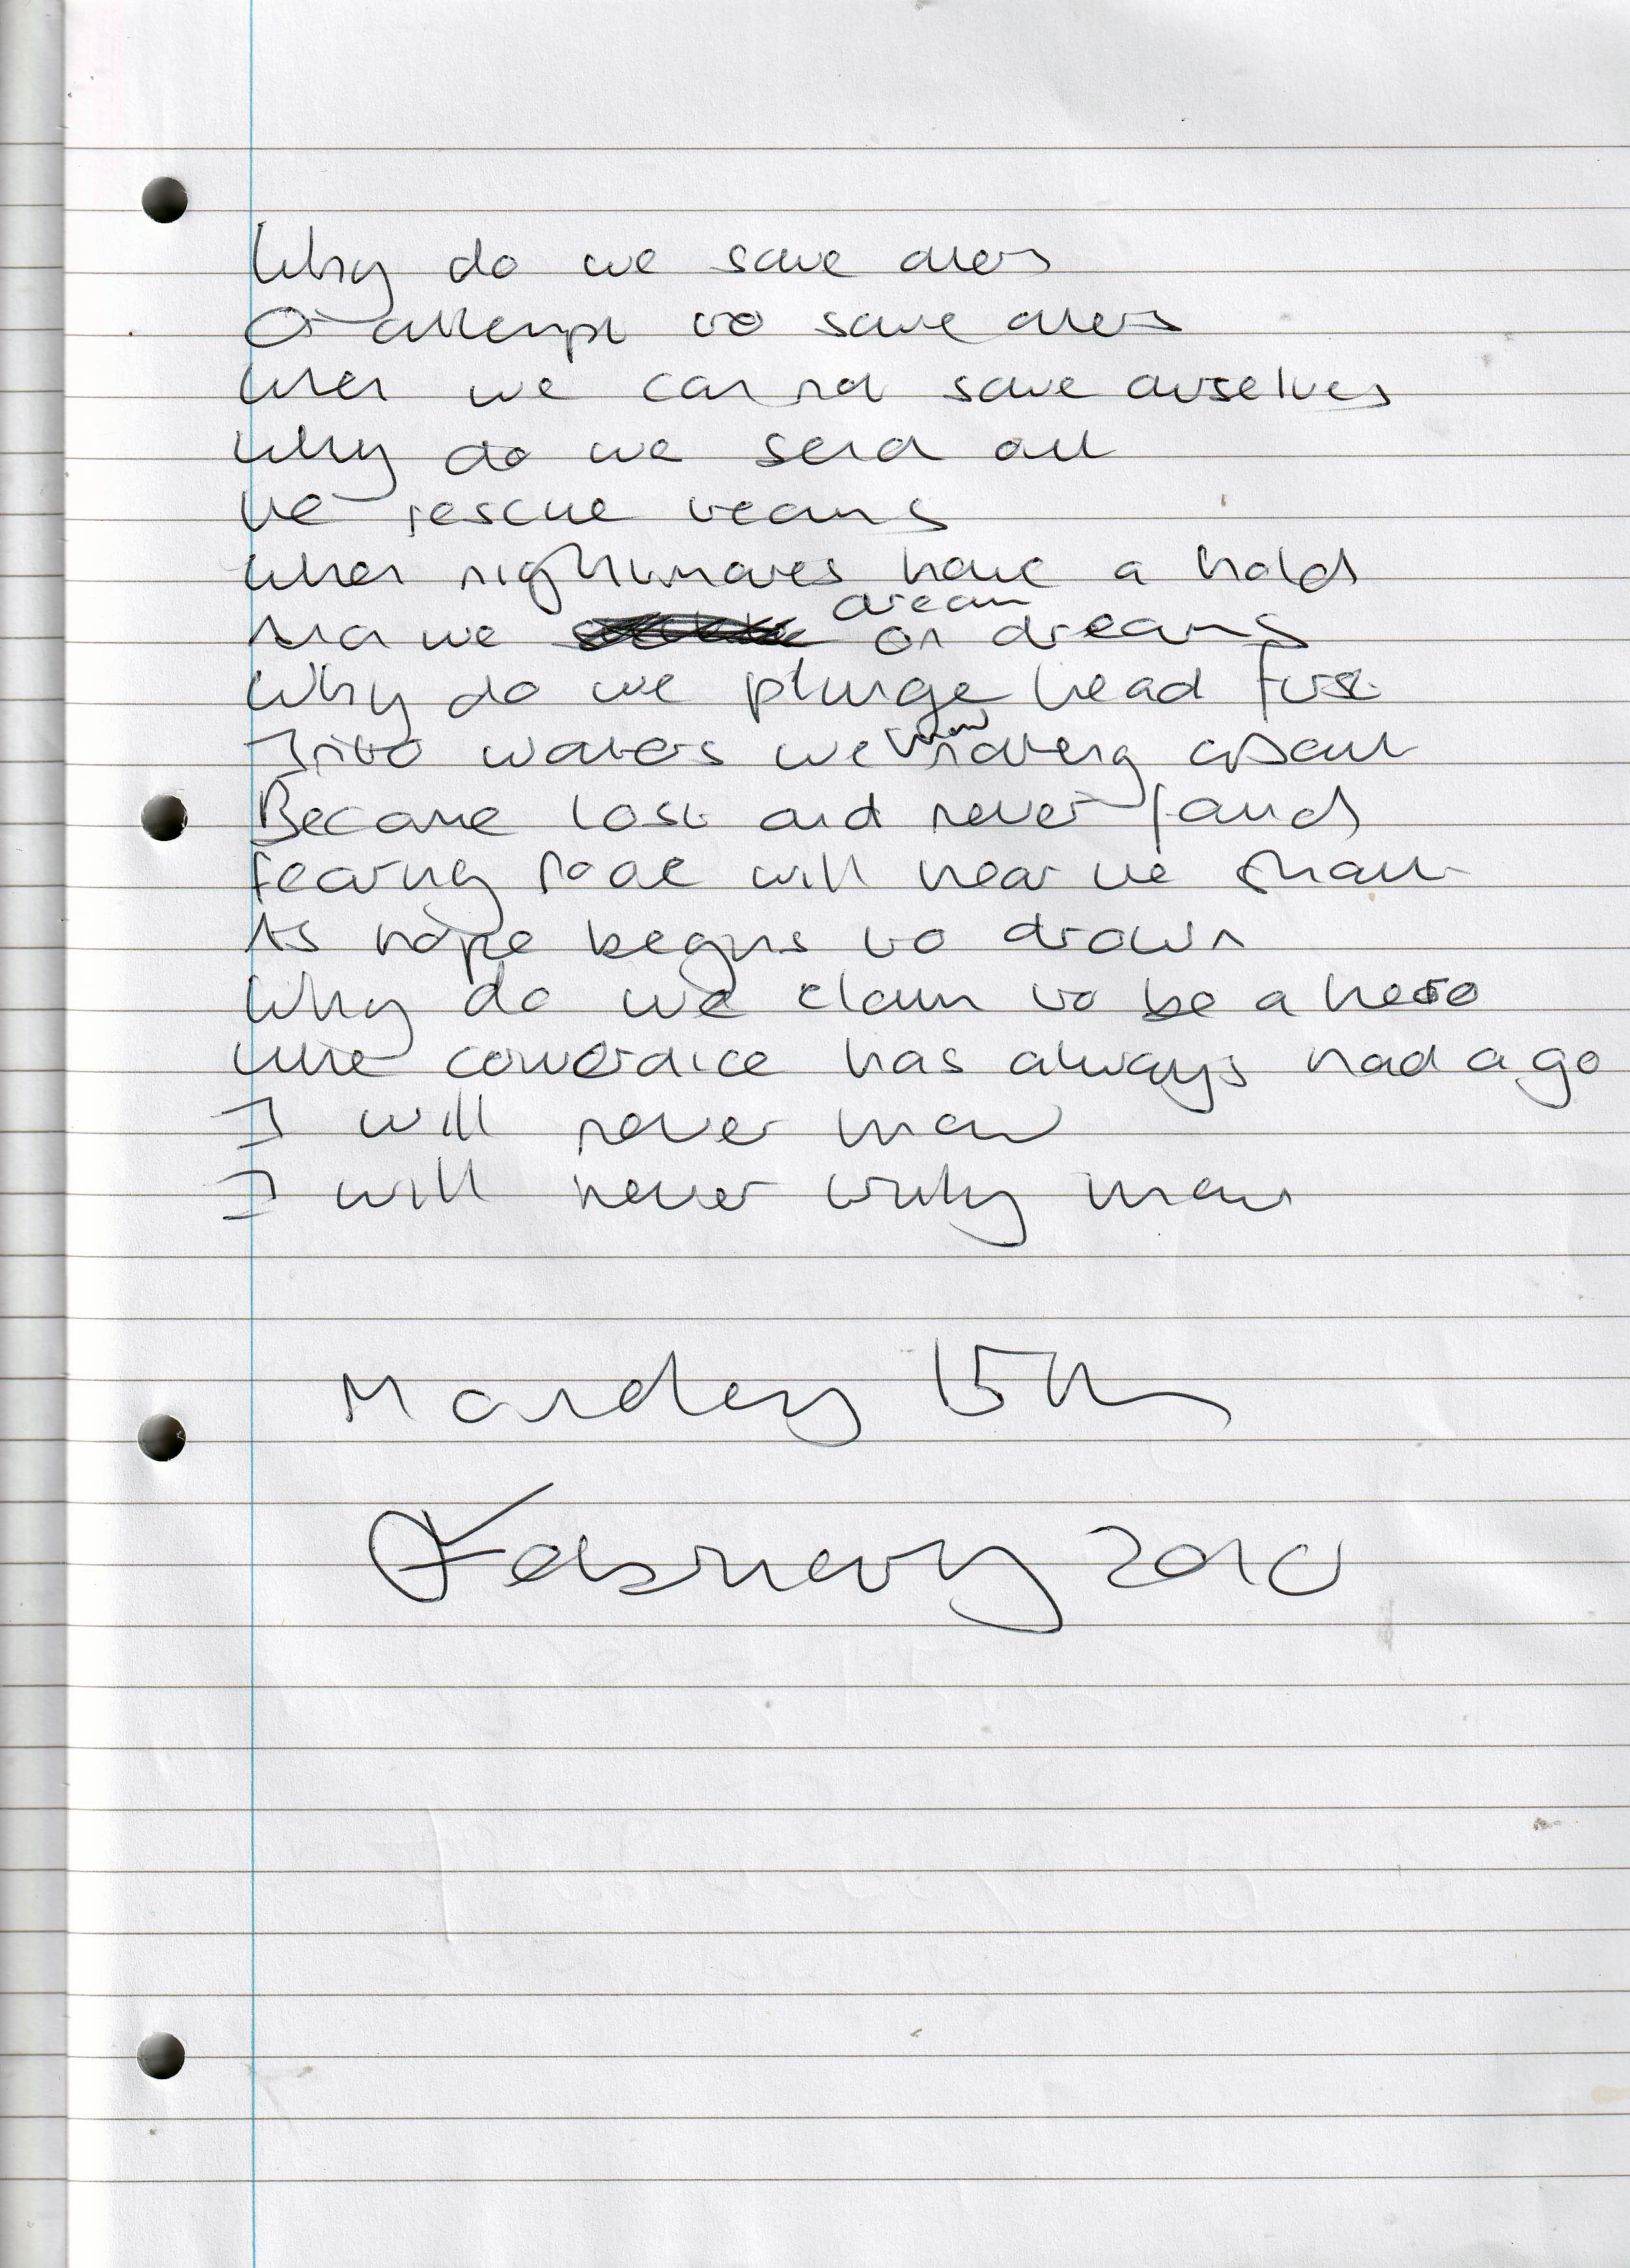 Why do we save others
Or attempt to save others
When we can not save ourselves
Why do we send out
the rescue teams
When nightmares have a hold
And we dream on dreams
Why do we plunge head first
Into waters we know nothing about
Become lost and never found
Fearing no one will hear the shout
As hope begins to drown
Why do we claim to be a hero
When cowardice has always had a go
I will never know
I will never truly know
Monday 15th
February 2010